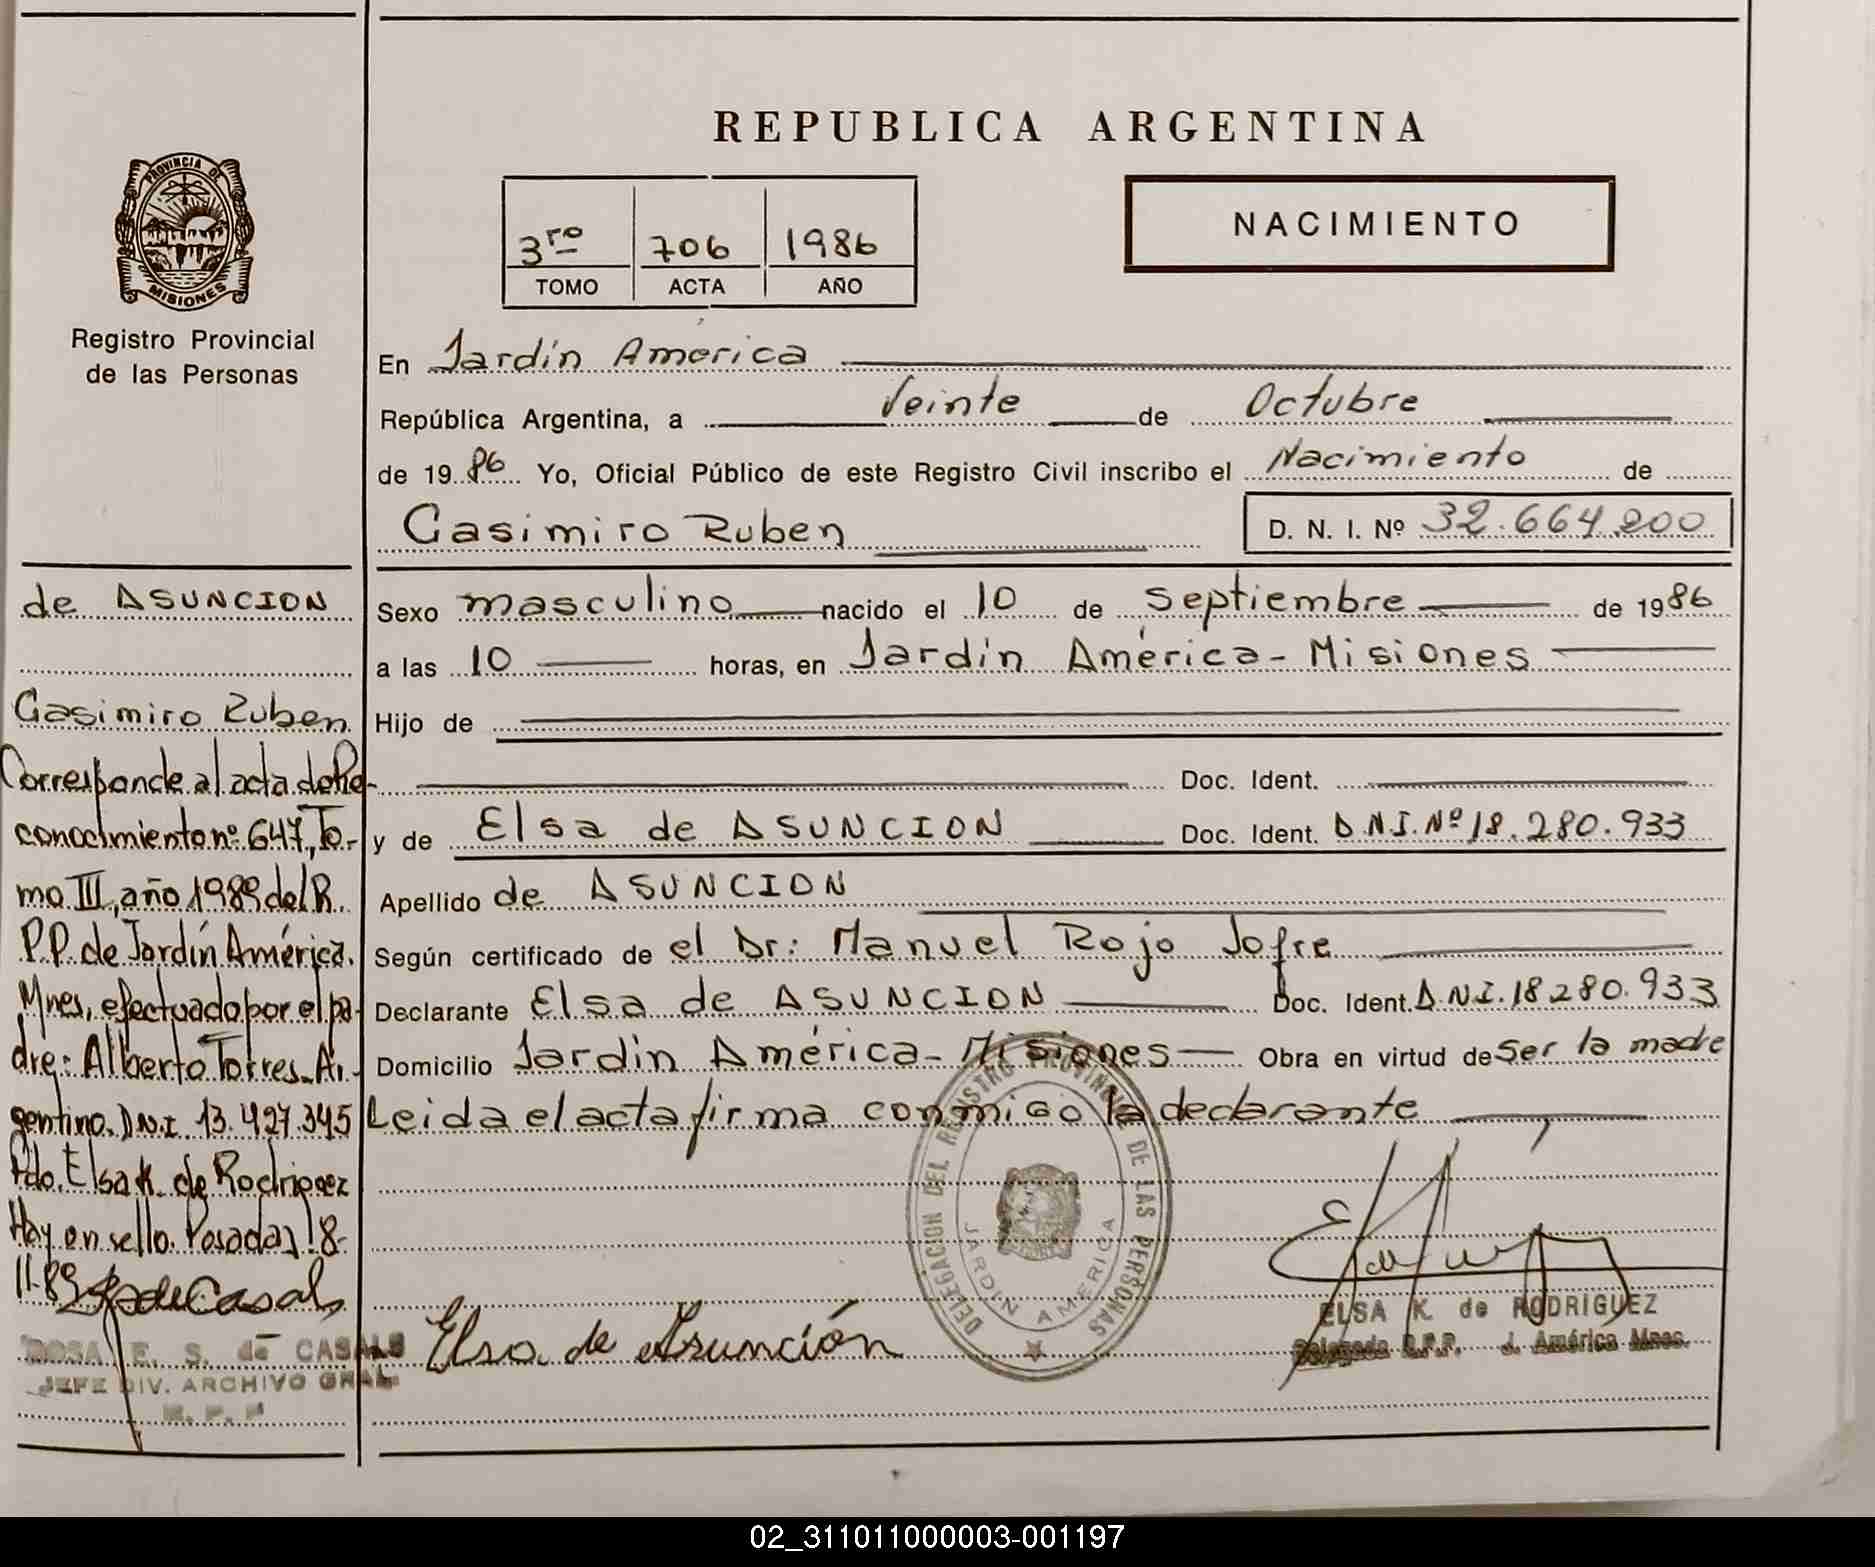 REPUBLICA ARGENTINA
PROVINCIA DE
MISIONES
Registro Provincial
de las Personas
3ro 706 1986
TOMO ACTA AÑO
NACIMIENTO
En Jardín América
República Argentina, a Veinte de Octubre
de 19 86 Yo, Oficial Público de este Registro Civil inscribo el Nacimiento de
Casimiro Ruben D. N. I. Nº 32.664.200
Sexo masculino nacido el 10 de Septiembre de 1986
a las 10 horas, en Jardín América - Misiones
Hijo de
Doc. Ident.
y de Elsa de ASUNCION Doc. Ident. D.N.I. Nº 18.280.933
Apellido de ASUNCION
Según certificado de el Dr: Manuel Rojo Jofre
Declarante Elsa de ASUNCION Doc. Ident. D.N.I. 18280.933
Domicilio Jardín América - Misiones Obra en virtud de Ser la madre
Leida el acta firma conmigo la declarante
Elsa de Asunción
DELEGACION DEL REGISTRO PROVINCIAL DE LAS PERSONAS
JARDIN AMERICA
ELSA K. de RODRIGUEZ
Delegada R.P.P. J. América Mnes.
de ASUNCION
Casimiro Ruben
Corresponde al acta de Re-
conocimiento nº 647, To-
mo III, año 1989 del R.
P.P. de Jardín América.
Mnes, efectuado por el pa-
dre: Alberto Torres - Ar-
gentino. D.N.I. 13.427.345
Fdo. Elsa K. de Rodriguez
Hay en sello. Posadas 18-
11-89
ROSA E. S. de CASALS
JEFE DIV. ARCHIVO GRAL
R. P. P
02_311011000003-001197